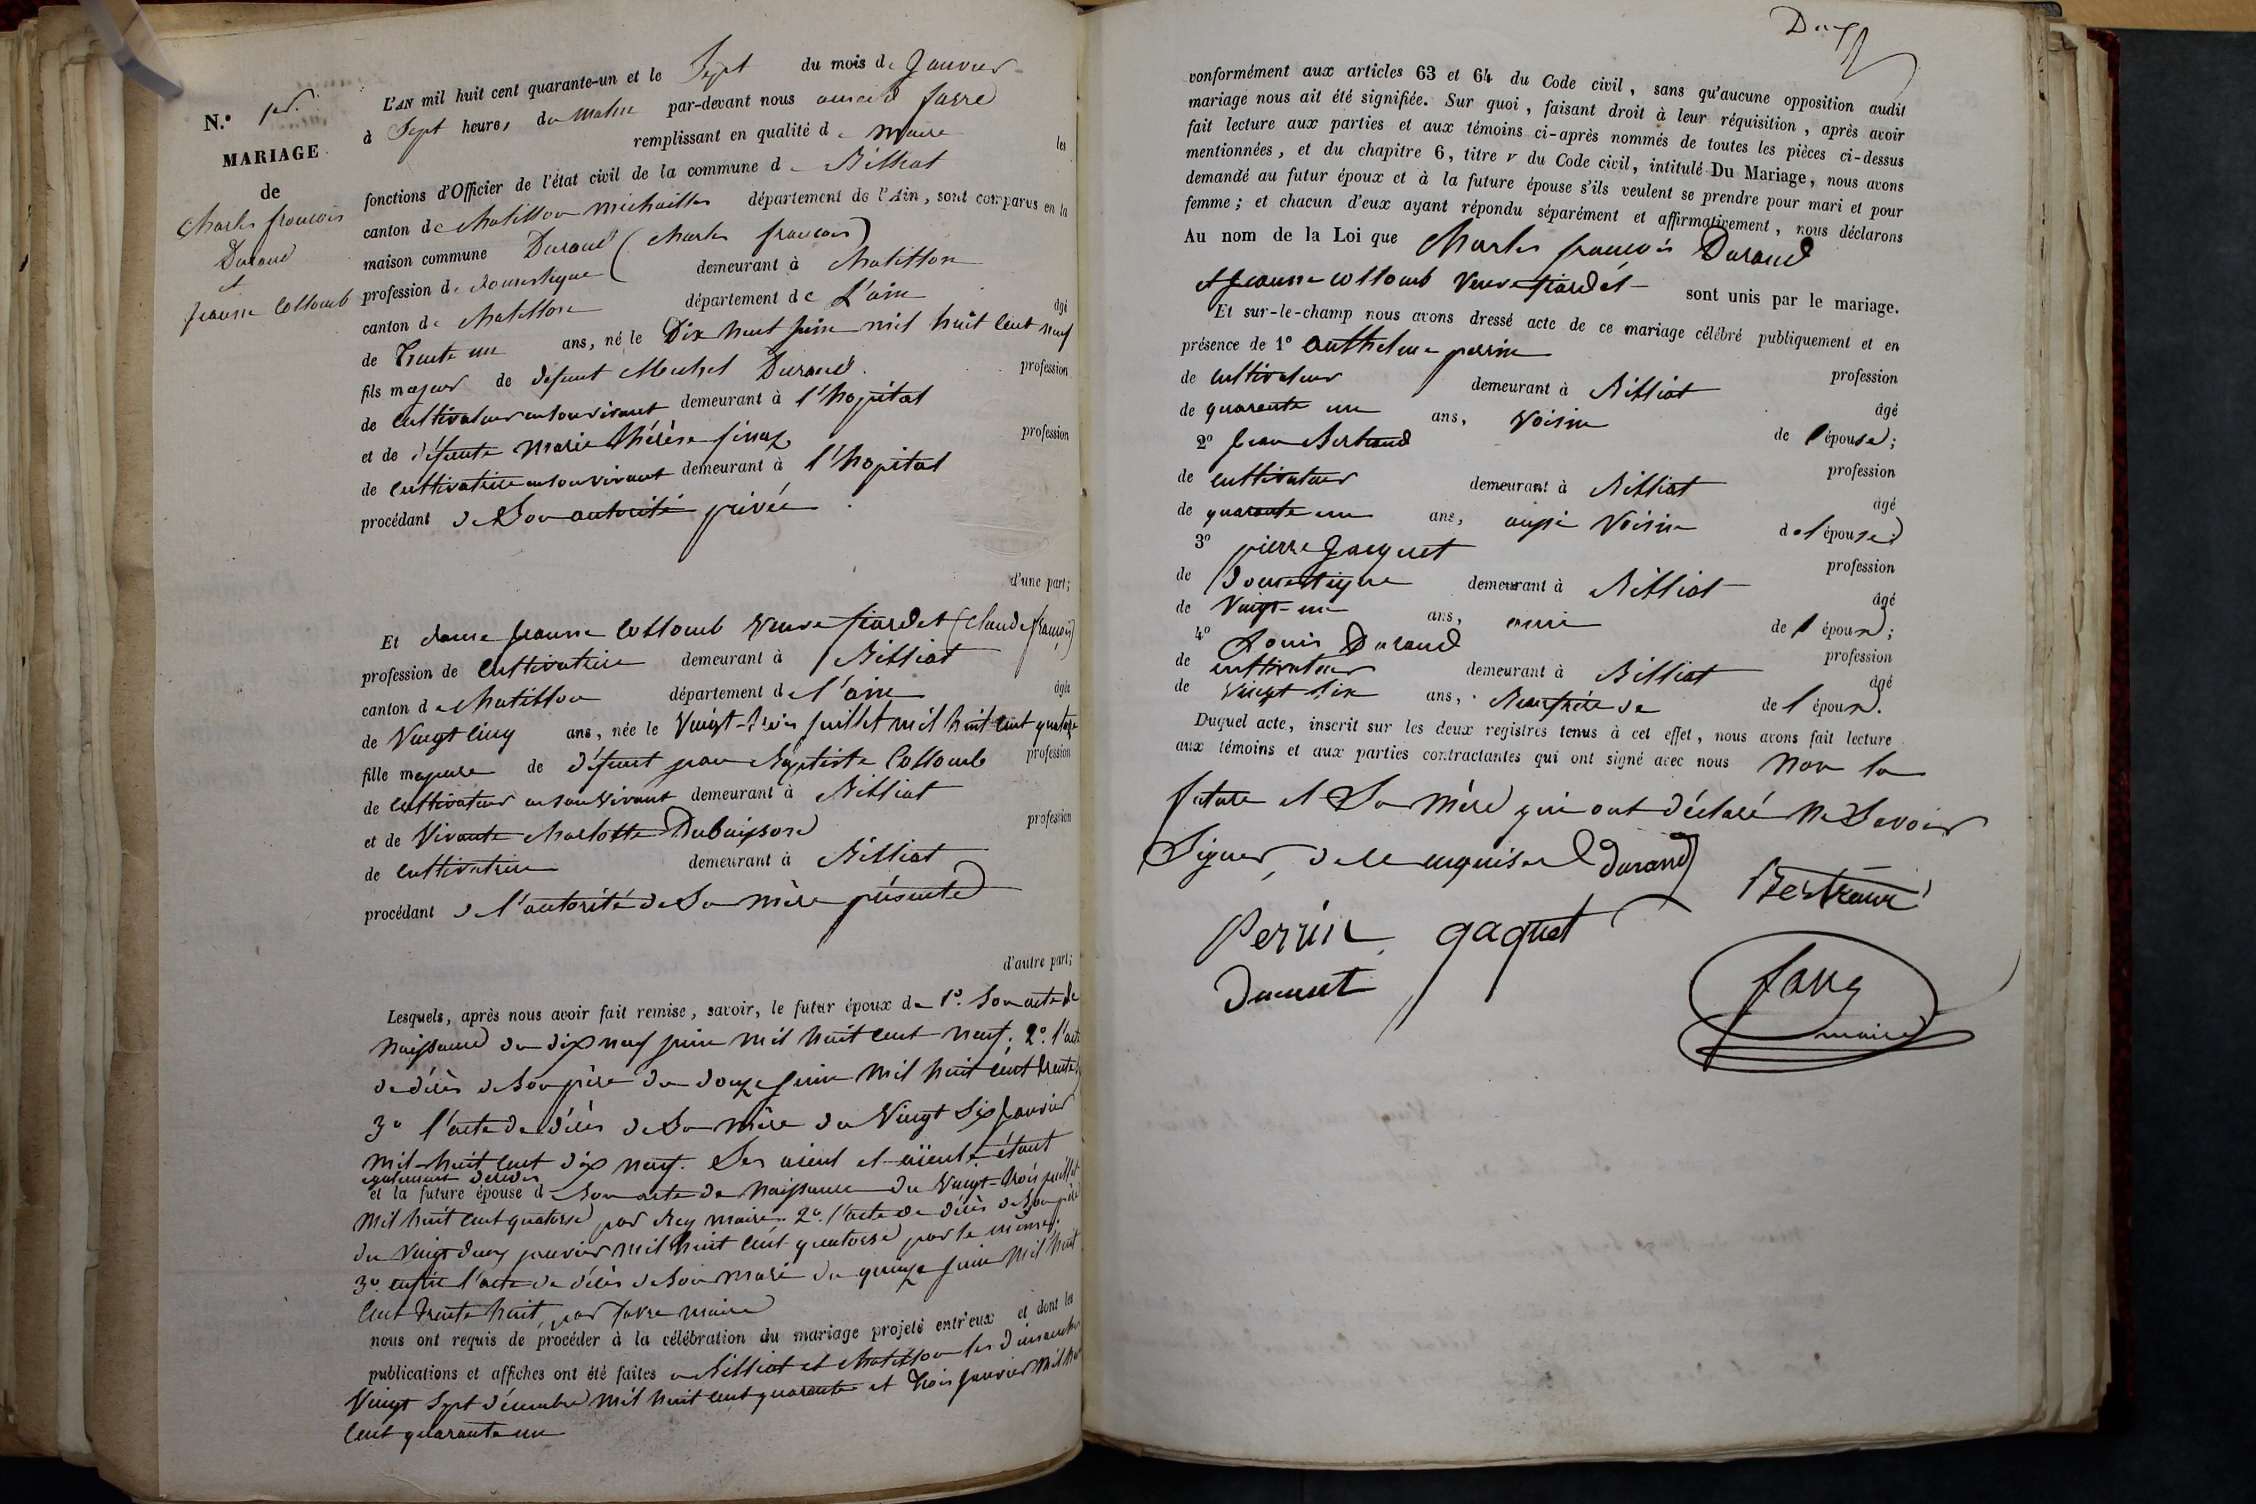 N.º 1er.
MARIAGE
de
Charles françois
Durand
et
jeanne Collomb
L'AN mil huit cent quarante-un et le Sept du mois de Janvier
à Sept heures du matin par-devant nous favre
remplissant en qualité de Maire les
fonctions d'Officier de l'état civil de la commune de Billiat
canton de Chatillon michaille département de l'Ain, sont comparus en la
maison commune Durand (Charles françois)
profession de domestique demeurant à Chatillon
canton de Chatillon département de L'ain âgé
de Trente un ans, né le Dix huit juin mil huit Cent neuf
fils majeur de défunt Michel Durand profession
de Cultivateur en son vivant demeurant à l'hopital
et de défunte Marie thérèse profession
de Cultivatrice en son vivant demeurant à l'hopital
procédant de Son autorité privée
d'une part;
Et dame jeanne Collomb Veuve (Claude françois)
profession de Cultivatrice demeurant à Billiat
canton de Chatillon département de l'ain âgée
de Vingt Cinq ans, née le Vingt-trois juillet mil huit cent quatorze
fille majeure de défunt jean Baptiste Collomb profession
de Cultivateur en son vivant demeurant à Billiat
et de Vivante Charlotte Dubuisson profession
de Cultivatrice demeurant à Billiat
procédant de l'autorité de Sa mère présente
d'autre part;
Lesquels, après nous avoir fait remise, savoir, le futur époux de 1º. Son acte de
Naissance du dix neuf juin mil huit cent neuf; 2º. l'acte
de décès de Son père du douze juin mil huit cent trente
3º l'acte de décès de Sa mère du Vingt Six janvier
mil huit cent dix neuf. Ses aieul et aïeule étant
également décédés
et la future épouse de Son acte de Naissance du Vingt-trois juillet
mil huit cent quatorze par Rey maire. 2º. l'acte de décès de Son père
du vingt deux janvier mil huit cent quatorze par le même.
3º. enfin l'acte de décès de Son mari du quinze juin mil huit
Cent trente huit, par favre maire
nous ont requis de procéder à la célébration du mariage projeté entr'eux et dont les
publications et affiches ont été faites à Billiat et Chatillon les dimanches
Vingt Sept décembre mil huit cent quarante et trois janvier mil huit
Cent quarante un
conformément aux articles 63 et 64 du Code civil, sans qu'aucune opposition audit
mariage nous ait été signifiée. Sur quoi, faisant droit à leur réquisition, après avoir
fait lecture aux parties et aux témoins ci-après nommés de toutes les pièces ci-dessus
mentionnées, et du chapitre 6, titre v du Code civil, intitulé Du Mariage, nous avons
demandé au futur époux et à la future épouse s'ils veulent se prendre pour mari et pour
femme; et chacun d'eux ayant répondu séparément et affirmativement, nous déclarons
Au nom de la Loi que Charles françois Durand
et Jeanne Collomb Veuve sont unis par le mariage.
Et sur-le-champ nous avons dressé acte de ce mariage célébré publiquement et en
présence de 1º anthelme perrin profession
de Cultivateur demeurant à Billiat âgé
de quarante un ans, Voisin de l'épouse;
2º Jean Bertrand profession
de Cultivateur demeurant à Billiat âgé
de quarante un ans, aussi Voisin de l'épouse;
3º pierre Jacquet profession
de Domestique demeurant à Billiat âgé
de Vingt-un ans, ami de l'époux;
4º Louis Durand profession
de Cultivateur demeurant à Billiat âgé
de Vingt Six ans, de l'époux.
Duquel acte, inscrit sur les deux registres tenus à cet effet, nous avons fait lecture
aux témoins et aux parties contractantes qui ont signé avec nous Non la
future et Sa mère qui ont déclaré ne Savoir
Signer, de ce enquises Durand
Bertrand
Perrin gaquet
favre
maire